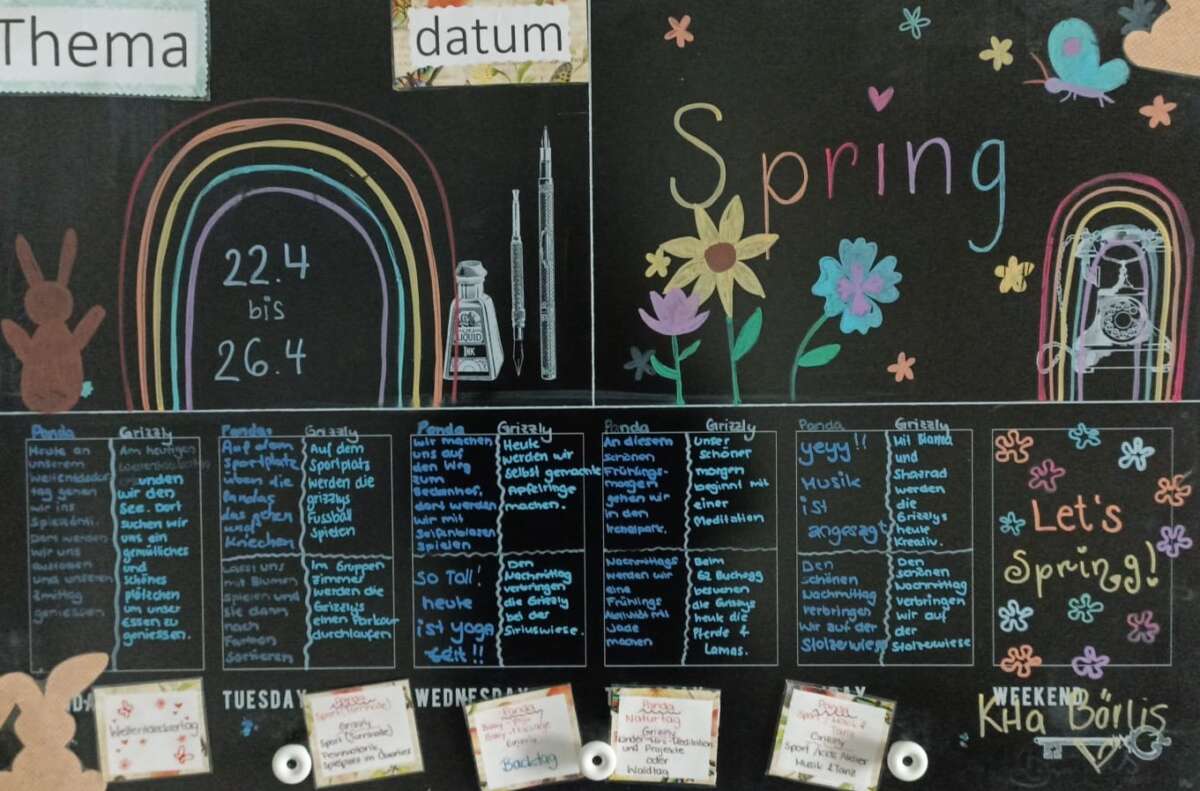 Thema
datum
Spring
22.4
bis
26.4
LIQUID
INK
Panda
Heute an
unserem
tag gehen
wir ins
Dort werden
wir uns
und unseren
Zmittag
geniessen
Grizzly
Am heutigen
unden
wir den
See. Dort
suchen wir
uns ein
gemütliches
und
schönes
plätzchen
um unser
Essen zu
geniessen.
Pandas
Auf dem
Sportplatz
üben die
Pandas
das gehen
und
Kriechen
Grizzly
Auf dem
Sportplatz
werden die
grizzlys
Fussball
Spielen
Lasst uns
mit Blumen
spielen und
sie dann
nach
Farben
Sortieren
Im Gruppen
Zimmer
werden die
Grizzlys
einen Parkour
durchlaufen
Panda
Wir machen
uns auf
den Weg
zum
Beckenhof,
dort werden
wir mit
Seifenblasen
Spielen
Grizzly
Heute
werden wir
Selbst gemachte
Apfelringe
machen.
So Toll!
heute
ist yoga
Zeit!!
Den
Nachmittag
verbringen
die Grizzly
bei der
Siriuswiese.
Panda
An diesem
schönen
Frühlings-
morgen
gehen wir
in den
Irchelpark.
Grizzly
unser
Schöner
morgen
beginnt mit
einer
Meditation
Nachmittags
werden wir
eine
Frühlings
Aktivität mit
Jade
machen
Beim
GZ Buchegg
besuchen
die Grizzlys
heute die
Pferde &
Lamas.
Panda
yeyy!!
Musik
ist
angesagt
Grizzly
Mit
und
werden
die
Grizzlys
heute
Kreativ.
Den
schönen
Nachmittag
verbringen
Wir auf der
Stolzewiese
Den
schönen
Nachmittag
verbringen
wir auf
der
Stolzewiese
Let's
Spring!
TUESDAY
WEDNESDAY
WEEKEND
Kita Börlis
Panda
Grizzly
Sport (Turnhalle)
Spielplatz im Quartier
Panda
Backtag
Panda
Naturtag
Grizzly
und Projekte
oder
Waldtag
Panda
Grizzly
Musik & Tanz